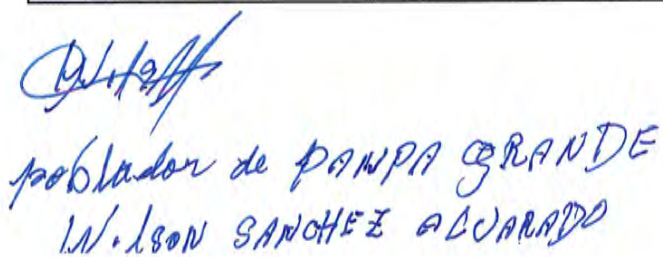 poblador de PAMPA GRANDE
Wilson SANCHEZ ALVARADO